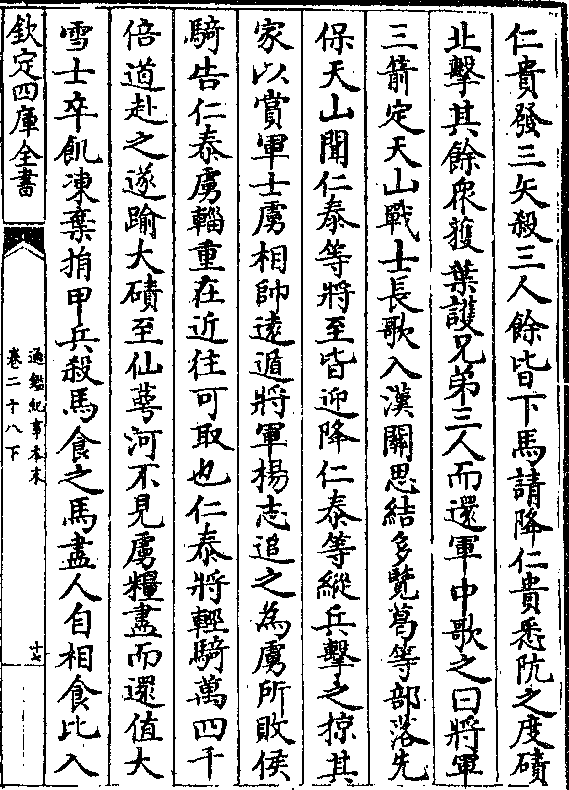 仁貴發三矢殺三人餘皆下馬請降仁貴悉阬之度磧
北擊其餘衆獲葉護兄弟三人而還軍中歌之曰將軍
三箭定天山戰士長歌入漢關思結多覽葛等部落先
保天山聞仁泰等將至皆迎降仁泰等縱兵擊之掠其
家以賞軍士虜相帥遠遁將軍楊志追之為虜所敗侯
騎告仁泰虜輜重在近往可取也仁泰將輕騎萬四千
倍道赴之遂踰大磧至仙萼河不見虜糧盡而還值大
雪士卒飢凍棄捐甲兵殺馬食之馬盡人自相食比入
欽定四庫全書
通鑑紀事本末
卷二十八下
十七